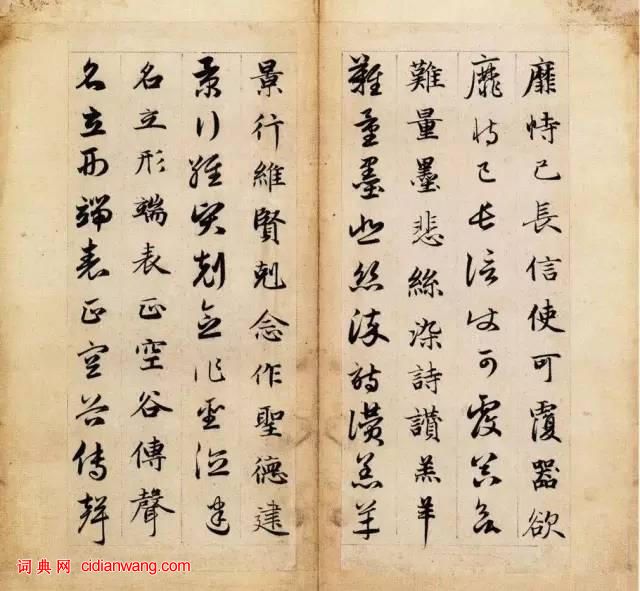 靡恃己長信使可覆器欲
靡恃己長信使可覆器欲
難量墨悲絲染詩讃羔羊
難量墨悲絲染詩讃羔羊
景行維賢剋念作聖德建
景行維賢剋念作聖德建
名立形端表正空谷傳聲
名立形端表正空谷傳聲
词典网 cidianwang.com